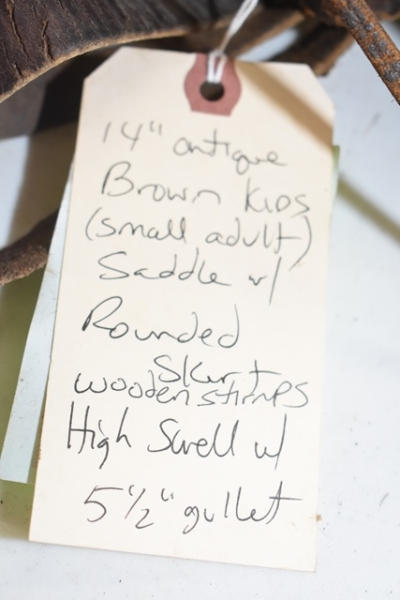 14" antique
Brown Kids
(small adult)
Saddle w/
Rounded
Skirt
wooden stirrups
High Swell w/
5 1/2" gullet